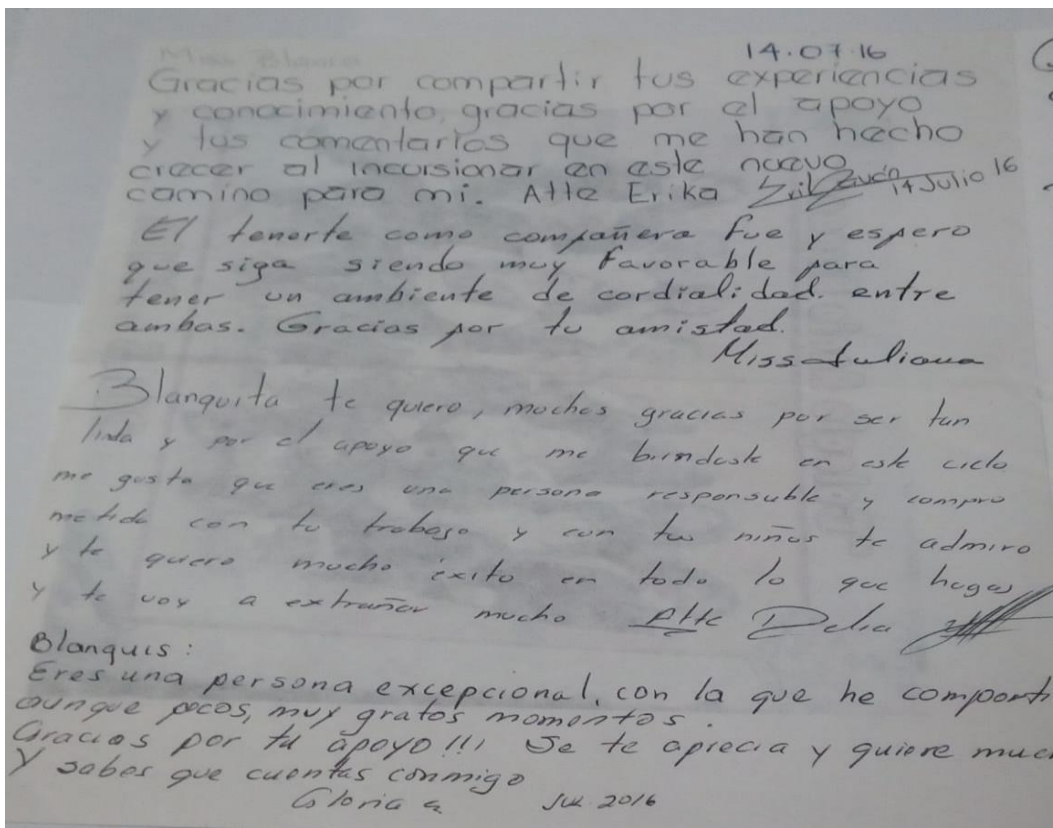 Miss Blanca
14.07.16
Gracias por compartir tus experiencias
y conocimiento, gracias por el apoyo
y tus comentarios que me han hecho
crecer al incursionar en este nuevo
camino para mi. Atte Erika
14 Julio 16
El tenerte como compañera fue y espero
que siga siendo muy favorable para
tener un ambiente de cordialidad. entre
ambas. Gracias por tu amistad.
Miss Juliana
Blanquita te quiero, muchas gracias por ser tan
linda y por el apoyo que me brindaste en este ciclo
me gusta que eres una persona responsable y compro
metida con tu trabajo y con tus niños te admiro
y te quiero mucho éxito en todo lo que hagas
y te voy a extrañar mucho Atte Delia
Blanquis:
Eres una persona excepcional, con la que he comparti
aunque pocos, muy gratos momentos.
Gracias por tu apoyo!!! Se te aprecia y quiere muc
Y sabes que cuentas conmigo
Gloria G Jul 2016